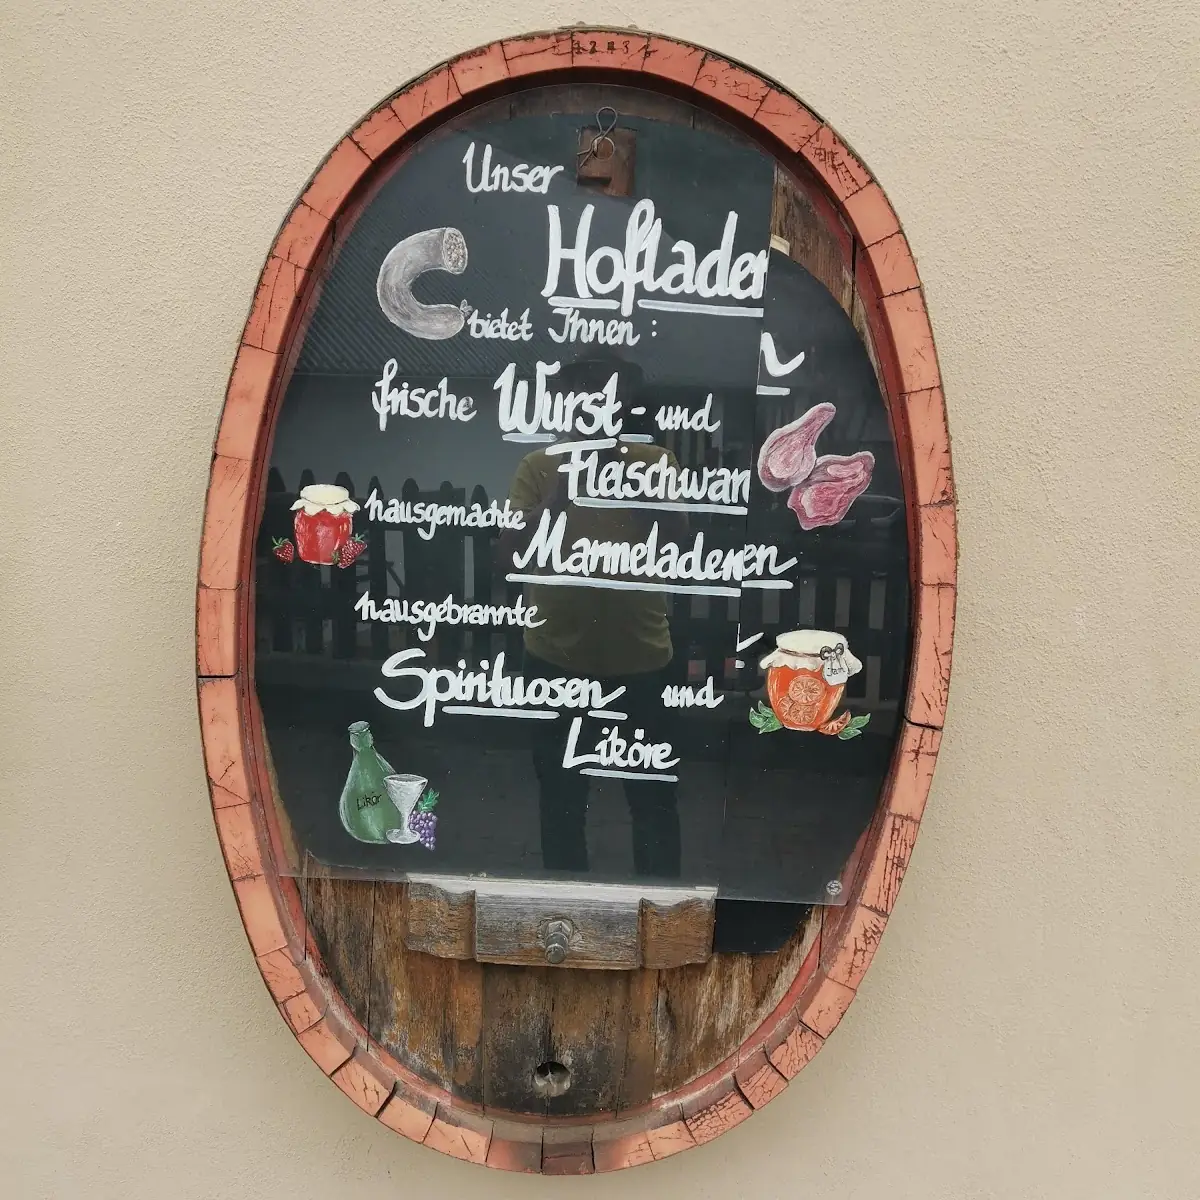 Unser
Hofladen
bietet Ihnen :
frische Wurst - und
Fleischwar
hausgemachte
Marmeladenen
hausgebrannte
Spirituosen und
Liköre
Likör